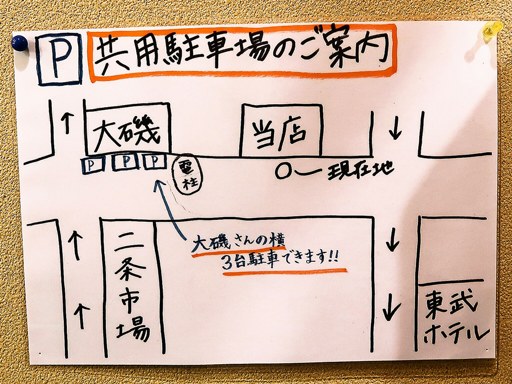 P 共用駐車場のご案内
大磯
当店
P P P
電柱
現在地
大磯さんの横
3台駐車できます!!
二条市場
東武
ホテル